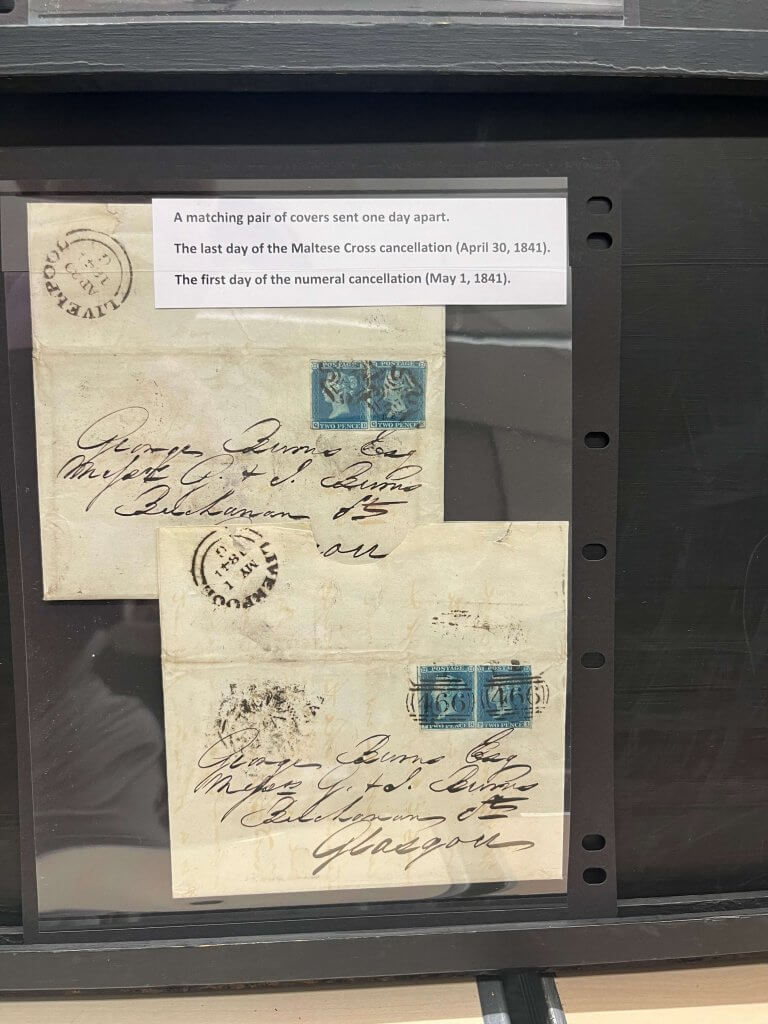 A matching pair of covers sent one day apart.
The last day of the Maltese Cross cancellation (April 30, 1841).
The first day of the numeral cancellation (May 1, 1841).
LIVERPOOL
1841
POSTAGE POSTAGE
TWO PENCE TWO PENCE
George Burns Esq
Messrs G. & J. Burns
Buchanan St
LIVERPOOL
MY 1
1841
POSTAGE POSTAGE
466 466
TWO PENCE TWO PENCE
George Burns Esq
Messrs G. & J. Burns
Buchanan St
Glasgow